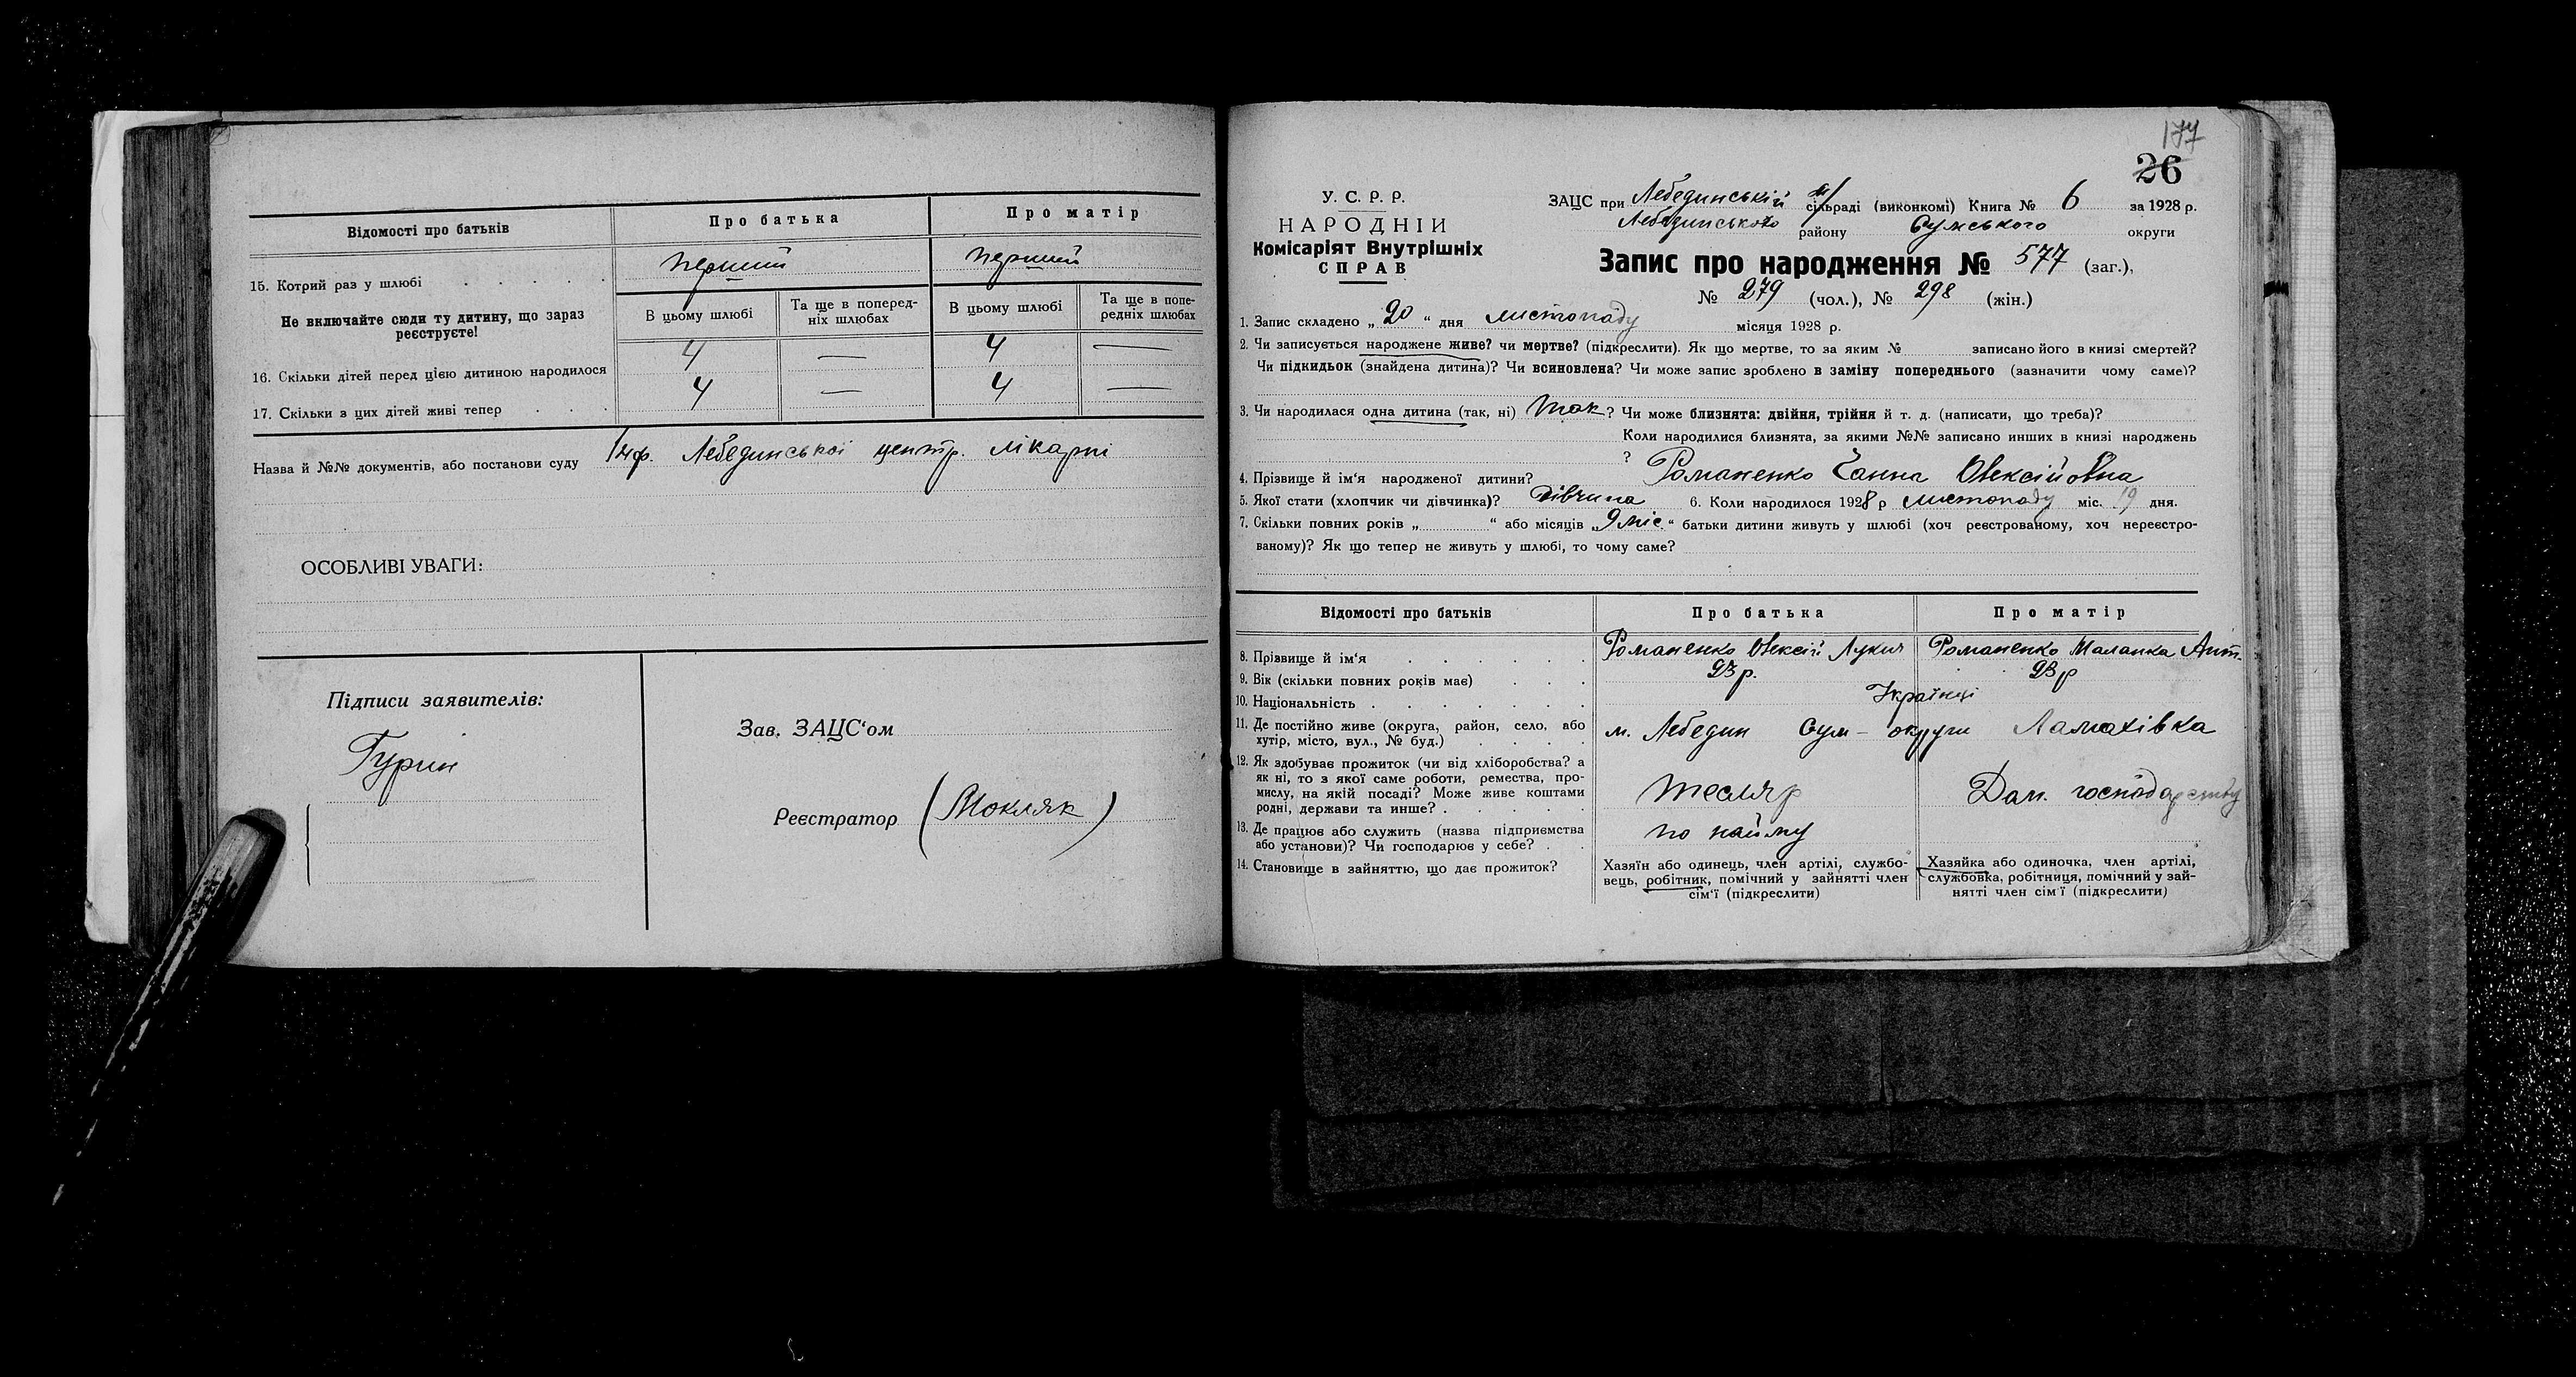 Відомості про батьків
Про батька
Про матір
15. Котрий раз у шлюбі
перший
перший
Не включайте сюди ту дитину, що зараз
реєструєте!
В цьому шлюбі
Та ще в поперед-
ніх шлюбах
В цьому шлюбі
Та ще в попе-
редніх шлюбах
16. Скільки дітей перед цією дитиною народилося
4 — 4 —
17. Скільки з цих дітей живі тепер
4 — 4 —
Назва й №№ документів, або постанови суду Інф. Лебединської центр. лікарні
ОСОБЛИВІ УВАГИ:
Підписи заявителів:
Гурин
Зав. ЗАЦС'ом
Реєстратор (Мокляк)
177
26
У. С. Р. Р.
НАРОДНІЙ
Комісаріят Внутрішніх
СПРАВ
ЗАЦС при Лебединській м/ сільраді (виконкомі) Книга № 6 за 1928 р.
Лебединського району Сумського округи
Запис про народження № 577 (заг.),
№ 279 (чол.), № 298 (жін.)
1. Запис складено „ 20 “ дня листопаду місяця 1928 р.
2. Чи записується народжене живе? чи мертве? (підкреслити). Як що мертве, то за яким № записано його в книзі смертей?
Чи підкидьок (знайдена дитина)? Чи всиновлена? Чи може запис зроблено в заміну попереднього (зазначити чому саме)?
3. Чи народилася одна дитина (так, ні) так? Чи може близнята: двійня, трійня й т. д. (написати, що треба)?
Коли народилися близнята, за якими №№ записано инших в книзі народжень
?
4. Прізвище й ім'я народженої дитини? Романенко Ганна Олексійовна
5. Якої стати (хлопчик чи дівчинка)? Дівчина 6. Коли народилося 1928 р листопаду міс. 19 дня.
7. Скільки повних років „ “ або місяців „9 міс.“ батьки дитини живуть у шлюбі (хоч реєстрованому, хоч нереєстро-
ваному)? Як що тепер не живуть у шлюбі, то чому саме?
Відомості про батьків
Про батька
Про матір
8. Прізвище й ім'я
Романенко Олексій Лукич
Романенко Маланка Ант.
9. Вік (скільки повних років має)
23 р.
23 р
10. Національність
Українці
11. Де постійно живе (округа, район, село, або
хутір, місто, вул., № буд.)
м. Лебедин Сум – округи Ламахівка
12. Як здобуває прожиток (чи від хліборобства? а
як ні, то з якої саме роботи, ремества, про-
мислу, на якій посаді? Може живе коштами
родні, держави та инше?
тесляр
Дом. господарству
13. Де працює або служить (назва підприємства
або установи)? Чи господарює у себе?
по найму
14. Становище в зайняттю, що дає прожиток?
Хазяїн або одинець, член артілі, службо-
вець, робітник, помічний у зайнятті член
сім'ї (підкреслити)
Хазяйка або одиночка, член артілі,
службовка, робітниця, помічний у зай-
нятті член сім'ї (підкреслити)